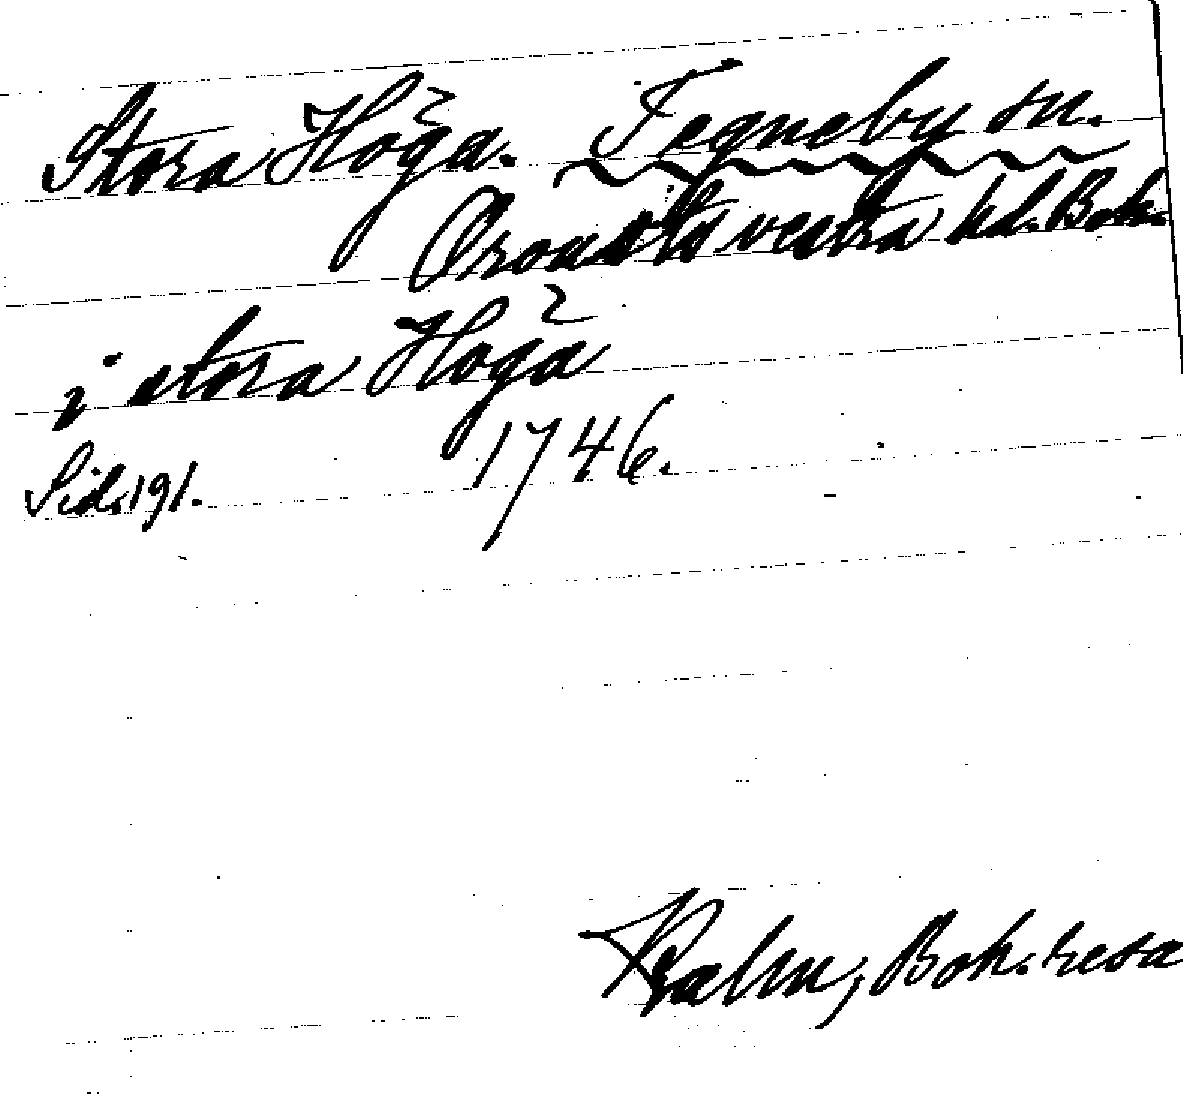 Stora Höga. Tegneby sn.
Oroust o. vestra hd. Boh.
i stora Höga
1746.
Sid. 191.
Kalm, Boh. resa